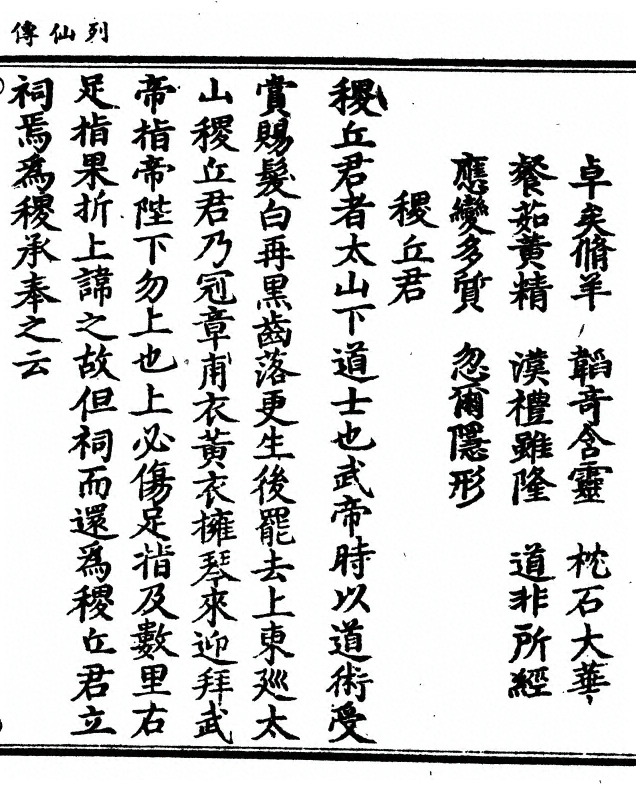 列仙傳
卓矣脩羊　韜奇含靈　枕石大華
餐茹黃精　漢禮雖隆　道非所經
應變多質　忽爾隱形
稷丘君
稷丘君者太山下道士也武帝時以道術受
賞賜髮白再黑齒落更生後罷去上東巡太
山稷丘君乃冠章甫衣黃衣擁琴來迎拜武
帝指帝陛下勿上也上必傷足指及數里右
足指果折上諱之故但祠而還為稷丘君立
祠焉為稷承奉之云